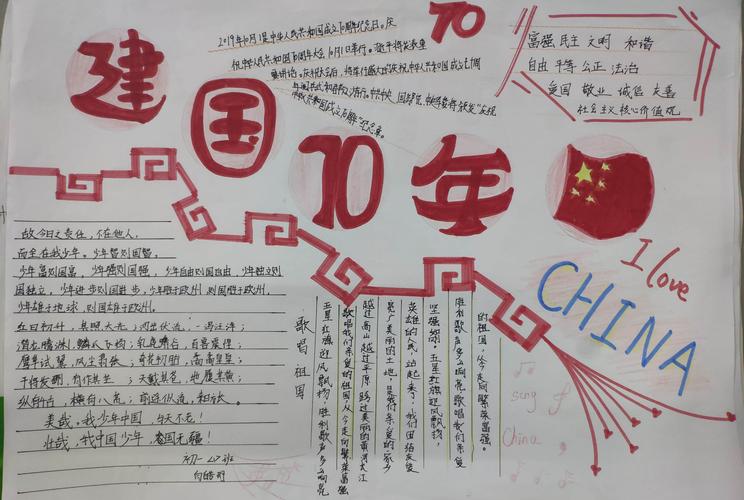 建国70年
70
2019年10月1是中华人民共和国成立70周年纪念日。庆
祝中华人民共和国70周年大会10月1日举行。
富强 民主 文明 和谐
自由 平等 公正 法治
爱国 敬业 诚信 友善
社会主义核心价值观
I love
CHINA
故今日之责任，不在他人，
而全在我少年。少年智则国智，
少年富则国富，少年强则国强，少年自由则国自由，少年独立则
国独立，少年进步则国进步，少年胜于欧洲，则国胜于欧洲，
少年雄于地球，则国雄于地球。
红日初升，其道大光；河出伏流，一泻汪洋；
潜龙腾渊，鳞爪飞扬；乳虎啸谷，百兽震惶；
鹰隼试翼，风尘翕张；奇花初胎，矞矞皇皇；
干将发硎，有作其芒；天戴其苍，地履其黄；
纵有千古，横有八荒；前途似海，来日方长。
美哉，我少年中国，与天不老！
壮哉，我中国少年，与国无疆！
初一 班
歌唱祖国
五星红旗迎风飘扬，胜利歌声多么响亮
歌唱我们亲爱的祖国，从今走向繁荣富强
越过高山 越过平原 跨过奔腾的黄河长江
宽广美丽的土地，是我们亲爱的家乡
英雄的人民站起来了，我们团结友爱
坚强如钢。五星红旗迎风飘扬，
胜利歌声多么响亮 歌唱我们亲爱
的祖国，从今走向繁荣富强。
sing
China